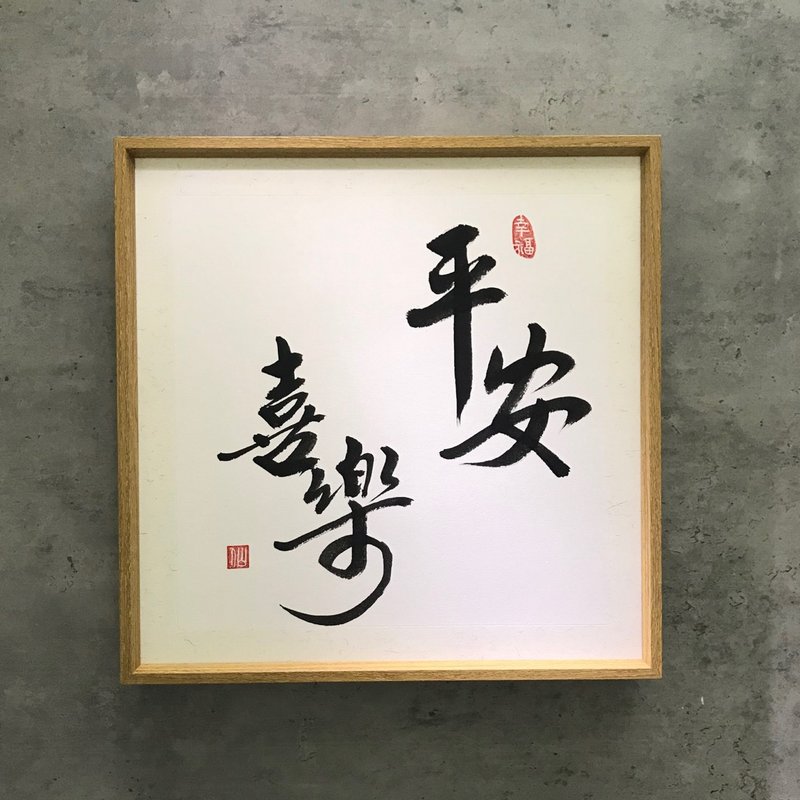 幸福
平安
喜樂